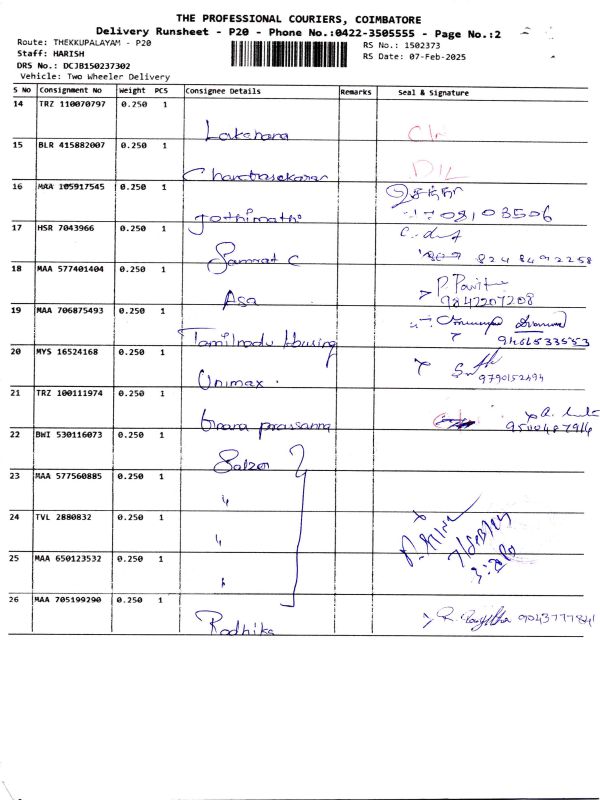 THE PROFESSIONAL COURIERS, COIMBATORE
Delivery Runsheet - P20 - Phone No.:0422-3505555 - Page No.:2
Route: THEKKUPALAYAM - P20
RS No.: 1502373
Staff: HARISH
RS Date: 07-Feb-2025
DRS No.: DCJB150237302
Vehicle: Two Wheeler Delivery
S No Consignment No Weight PCS Consignee Details Remarks Seal & Signature
14 TRZ 110070797 0.250 1
Lakshana
15 BLR 415882007 0.250 1
DIL
Chandrasekaran
16 MAA 105917545 0.250 1
Jothimathi
17 HSR 7043966 0.250 1
Samrat C 8248492258
18 MAA 577401404 0.250 1
Asa 9842207208
19 MAA 706875493 0.250 1
Tamilnadu Housing
20 MYS 16524168 0.250 1
Unimax. 9790152494
21 TRZ 100111974 0.250 1
prassanna
22 BWI 530116073 0.250 1
Salzer
23 MAA 577560885 0.250 1
"
24 TVL 2880832 0.250 1
"
25 MAA 650123532 0.250 1
"
26 MAA 705199290 0.250 1
Radhika